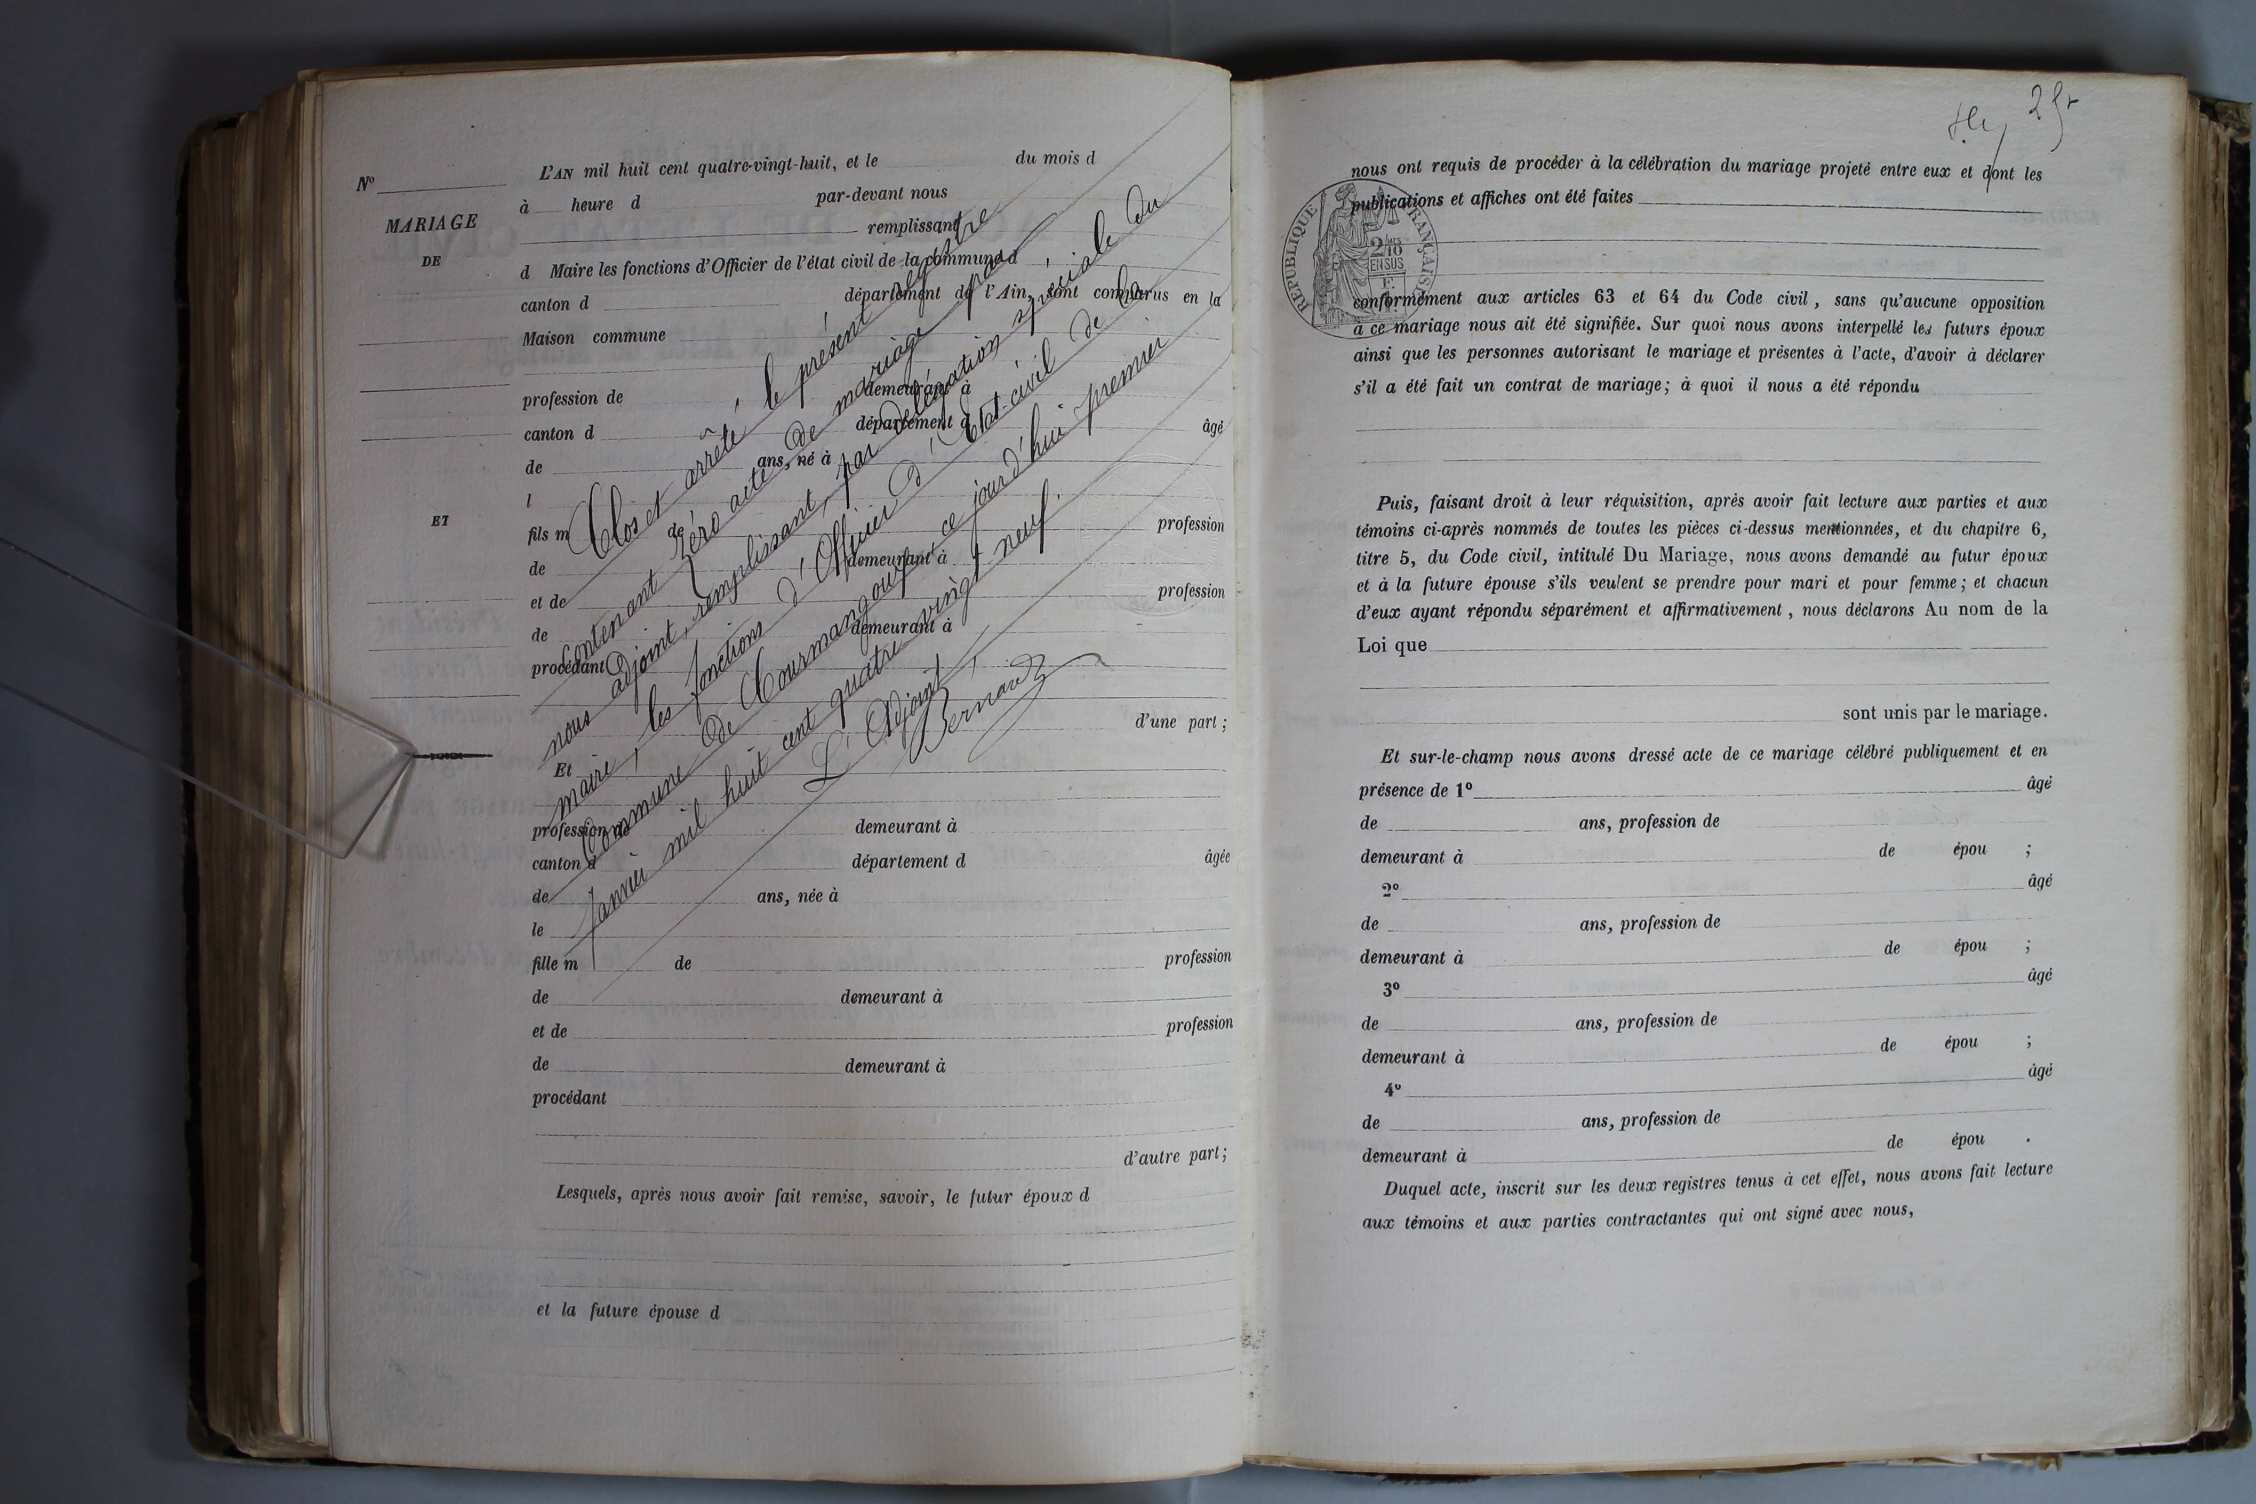 N°
MARIAGE
DE
ET
L'AN mil huit cent quatre-vingt-huit, et le du mois d
à heure d par-devant nous
remplissant
d Maire les fonctions d'Officier de l'état civil de la commune d
canton d département de l'Ain, sont comparus en la
Maison commune
profession de demeurant à
canton d département d âgé
de ans, né à
l
fils m de profession
de demeurant à
et de profession
de demeurant à
procédant
d'une part ;
Et
profession de demeurant à
canton d département d âgée
de ans, née à
le
fille m de profession
de demeurant à
et de profession
de demeurant à
procédant
d'autre part ;
Lesquels, après nous avoir fait remise, savoir, le futur époux d
et la future épouse d
Clos et arrêté le présent registre
contenant zéro acte de mariage par
nous adjoint, remplissant, par délégation spéciale du
maire, les fonctions d'Officier d'Etat-civil de la
Commune de Courmangoux, ce jourd'hui premier
Janvier mil huit cent quatre vingt neuf.
L'Adjoint,
Bernard
25
nous ont requis de procéder à la célébration du mariage projeté entre eux et dont les
publications et affiches ont été faites
RÉPUBLIQUE FRANÇAISE
conformément aux articles 63 et 64 du Code civil, sans qu'aucune opposition
à ce mariage nous ait été signifiée. Sur quoi nous avons interpellé les futurs époux
ainsi que les personnes autorisant le mariage et présentes à l'acte, d'avoir à déclarer
s'il a été fait un contrat de mariage ; à quoi il nous a été répondu
Puis, faisant droit à leur réquisition, après avoir fait lecture aux parties et aux
témoins ci-après nommés de toutes les pièces ci-dessus mentionnées, et du chapitre 6,
titre 5, du Code civil, intitulé Du Mariage, nous avons demandé au futur époux
et à la future épouse s'ils veulent se prendre pour mari et pour femme ; et chacun
d'eux ayant répondu séparément et affirmativement, nous déclarons Au nom de la
Loi que
sont unis par le mariage.
Et sur-le-champ nous avons dressé acte de ce mariage célébré publiquement et en
présence de 1° âgé
de ans, profession de
demeurant à de épou ;
2° âgé
de ans, profession de
demeurant à de épou ;
3° âgé
de ans, profession de
demeurant à de épou ;
4° âgé
de ans, profession de
demeurant à de épou .
Duquel acte, inscrit sur les deux registres tenus à cet effet, nous avons fait lecture
aux témoins et aux parties contractantes qui ont signé avec nous,